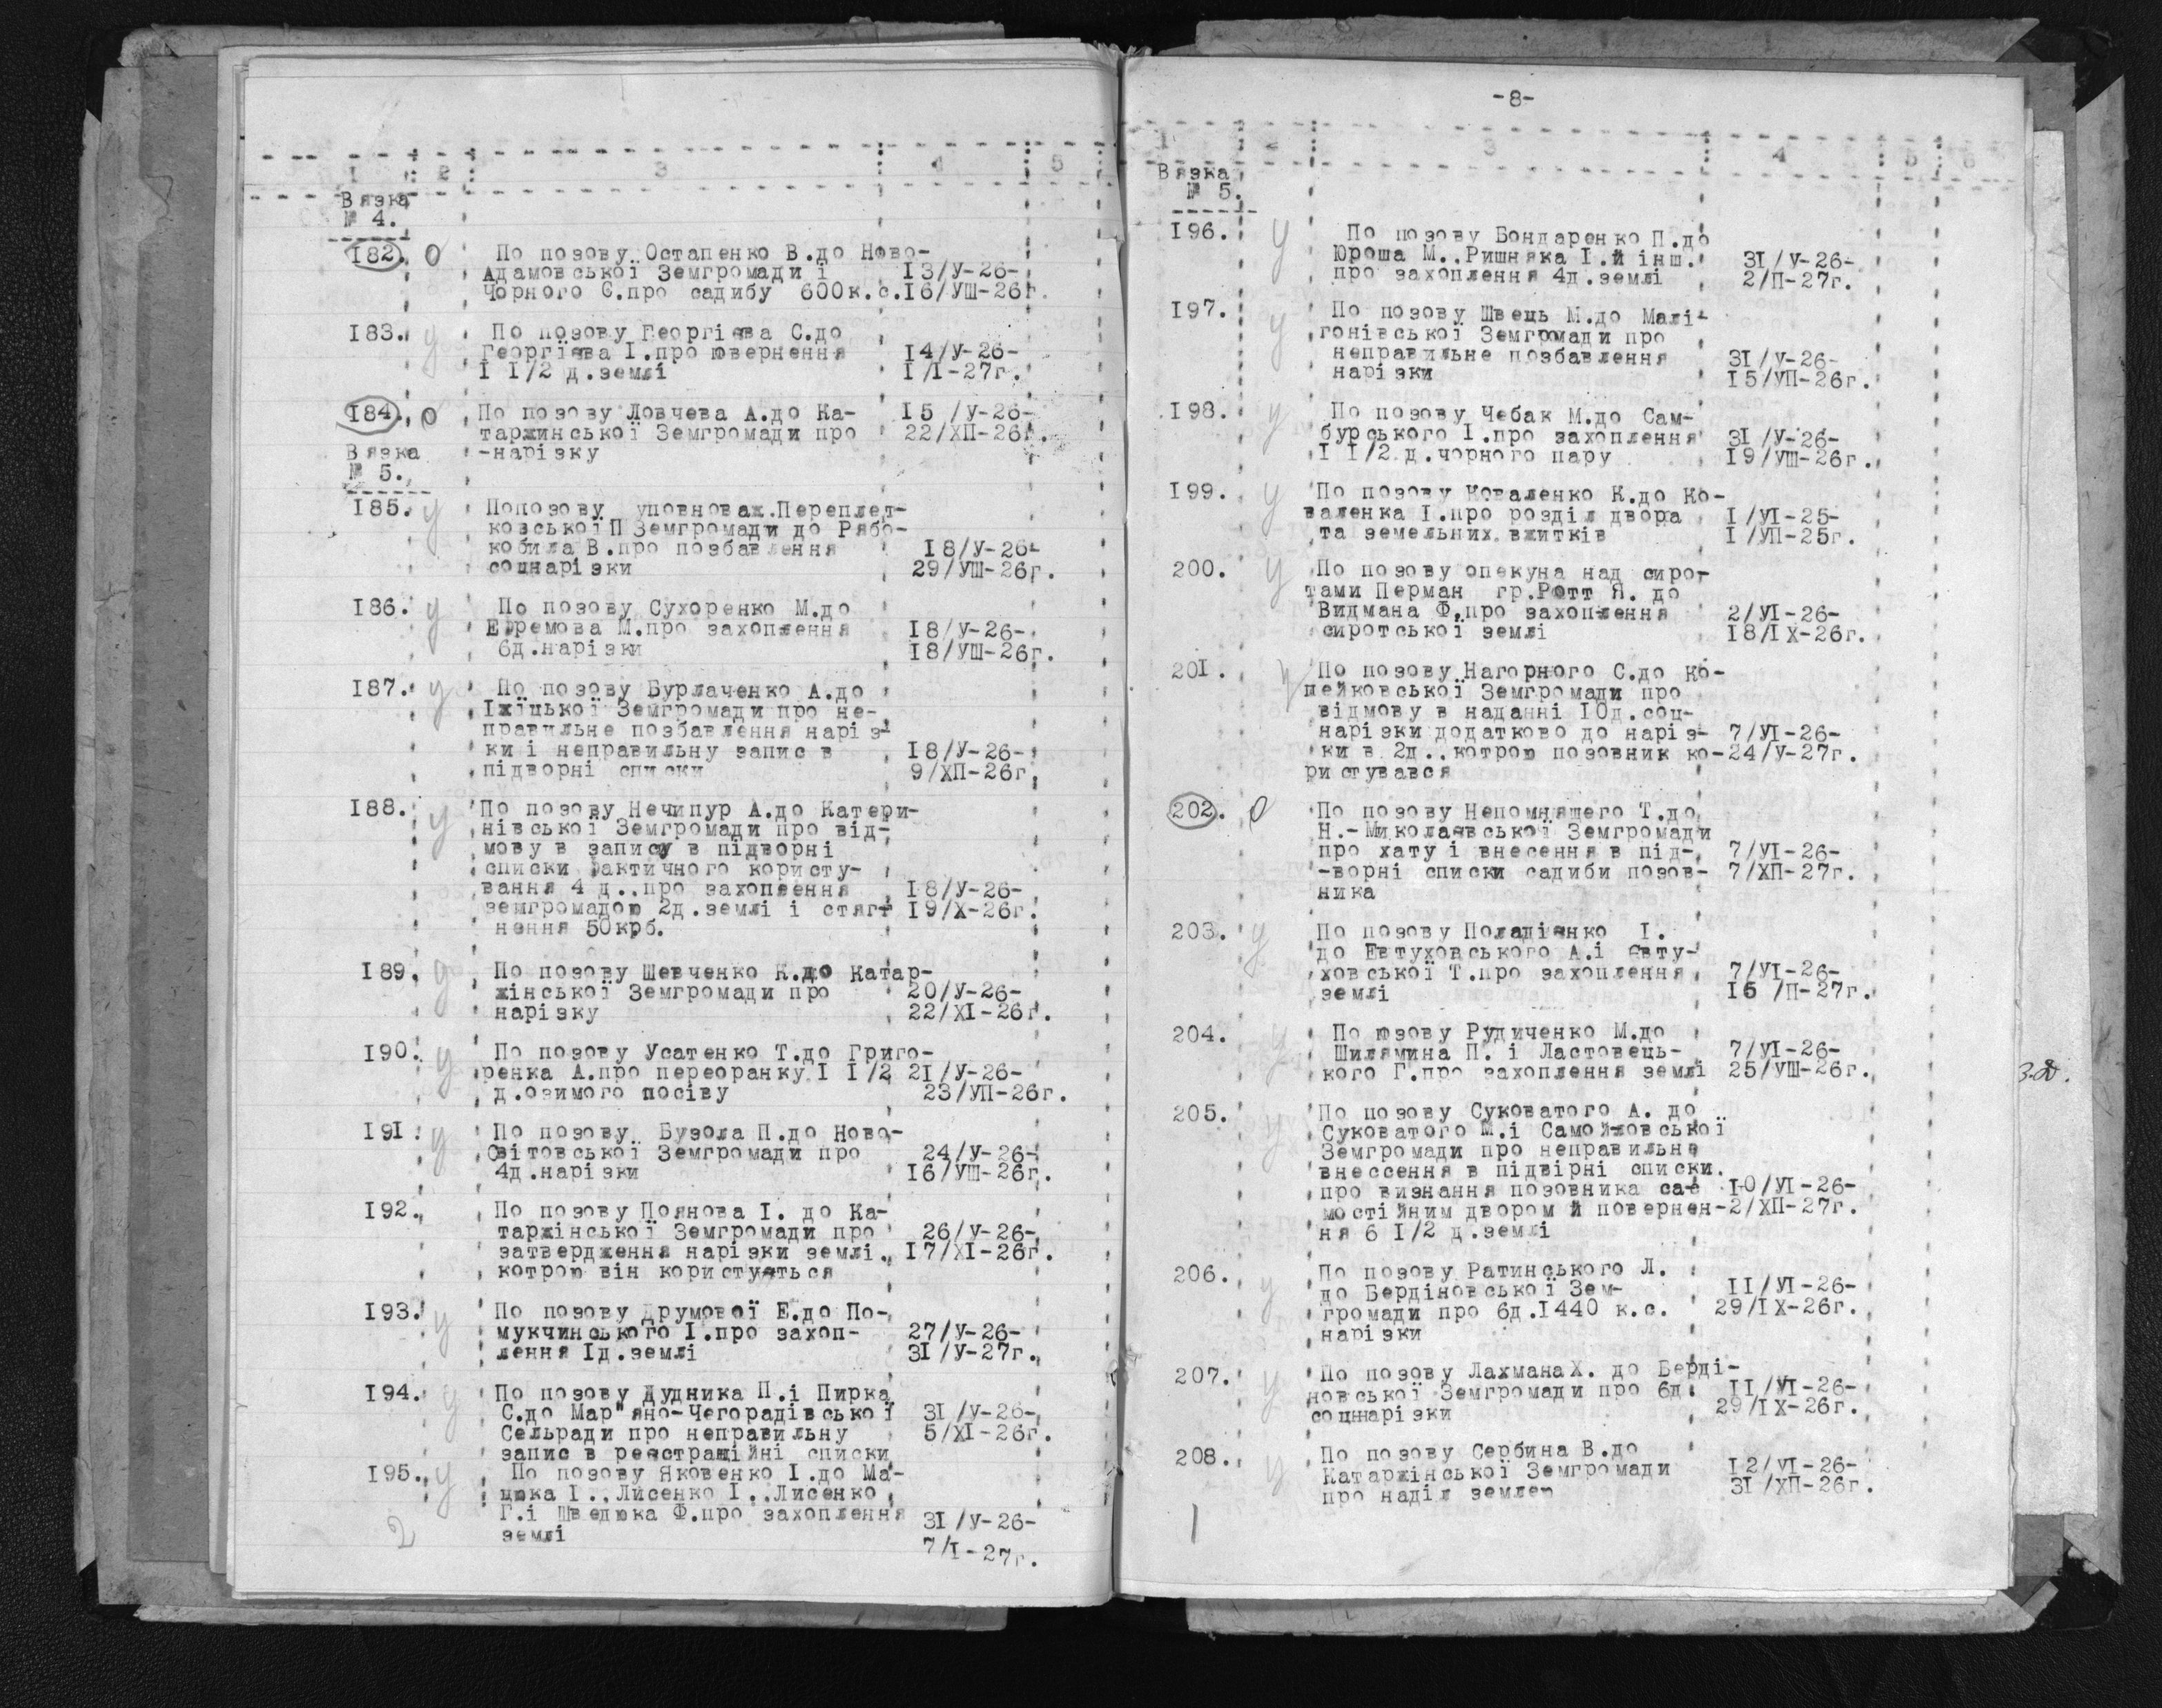 1 2 3 4 5
Вязка
№ 4.
182. О По позову Остапенко В.до Ново-
Адамовської Земгромади ї 13/У-26-
Чорного С.про садибу 600к.с. 16/УШ-26г.
183. у По позову Георгієва С.до
Георгієва І.про ювернення 14/У-26-
І І/2 д.землі 1/І-27г.
184. О По позову Ловчева А.до Ка- 15/У-26-
таржинської Земгромади про 22/ХП-26г.
-нарізку
Вязка
№ 5.
185. у Попозову уповноваж.Переплет-
ковської П Земгромади до Рябо-
кобила В.про позбавлення 18/У-26-
соцнарізки 29/УШ-26г.
186. у По позову Сухоренко М.до
Ефремова М.про захоплення 18/У-26-
6д.нарізки 18/УШ-26г.
187. у По позову Бурлаченко А.до
Іжіцької Земгромади про не-
правильне позбавлення наріз-
ки і неправильну запис в 18/У-26-
підворні списки 9/ХП-26г.
188. у По позову Нечипур А.до Катери-
нівської Земгромади про від-
мову в запису в підворні
списки фактичного користу-
вання 4 д..про захоплення 18/У-26-
земгромадою 2д.землі і стяг- 19/Х-26г.
нення 50крб.
189. у По позову Шевченко К.до Катар-
жінської Земгромади про 20/У-26-
нарізку 22/ХІ-26г.
190. у По позову Усатенко Т.до Григо-
ренка А.про переоранку І І/2 21/У-26-
д.озимого посіву 23/УП-26г.
191. у По позову Бузола П.до Ново-
Світовської Земгромади про 24/У-26-
4д.нарізки 16/УШ-26г.
192. По позову Поянова І. до Ка-
таржінської Земгромади про 26/У-26-
затвердження нарізки землі. 17/ХІ-26г.
котрою він користується
193. у По позову Друмової Е.до По-
мукчинського І.про захоп- 27/У-26-
лення Ід.землі 31/У-27г.
194. у По позову Дудника П.і Пирка
С.до Мар"яно-Чегорадівської 31/У-26-
Сельради про неправильну 5/ХІ-26г.
запис в реєстраційні списки
195. у По позову Яковенко І.до Ма-
цюка І..Лисенко І..Лисенко
Г.і Шведюка Ф.про захоплення 31/У-26-
землі 7/І-27г.
2
-8-
1 2 3 4 5 6
Вязка
№ 5.
196. у По позову Бондаренко П.до
Юроша М..Ришняка І.й інш. 31/У-26-
про захоплення 4д.землі 2/П-27г.
197. у По позову Швець М.до Малі-
гонівської Земгромади про
неправильне позбавлення 31/У-26-
нарізки 15/УП-26г.
198. у По позову Чебак М.до Сам-
бурського І.про захоплення 31/У-26-
І І/2 д.чорного пару 19/УШ-26г.
199. у По позову Коваленко К.до Ко-
валенка І.про розділ двора 1/УІ-25-
та земельних вжитків 1/УП-25г.
200. у По позову опекуна над сиро-
тами Перман гр.Ротт Я. до
Видмана Ф.про захоплення 2/УІ-26-
сиротської землі 18/ІХ-26г.
201. у По позову Нагорного С.до Ко-
шейковської Земгромади про
відмову в наданні 10д.соц-
нарізки додатково до наріз- 7/УІ-26-
ки в 2д..котрою позовник ко- 24/У-27г.
ристувався
202. О По позову Непомнящего Т.до
Н.-Миколаєвської Земгромади
про хату і внесення в під- 7/УІ-26-
-ворні списки садиби позов- 7/ХП-27г.
ника
203. у По позову Поладієнко І.
до Евтуховського А.і Євту-
ховської Т.про захоплення 7/УІ-26-
землі 15/П-27г.
204. у По юзову Рудиченко М.до
Шилямина П. і Ластовець- 7/УІ-26-
кого Г.про захоплення землі 25/УШ-26г.
205. у По позову Суковатого А. до
Суковатого М.і Самойловської
Земгромади про неправильне
внессення в підвірні списки.
про визнання позовника са- 10/УІ-26-
мостійним двором й повернен- 2/ХП-27г.
ня 6 І/2 д.землі
206. у По позову Ратинського Л.
до Бердіновської Зем- 11/УІ-26-
громади про 6д.1440 к.с. 29/ІХ-26г.
нарізки
207. у По позову Лахмана Х. до Берді-
новської Земгромади про 6д. 11/УІ-26-
соцнарізки 29/ІХ-26г.
208. у По позову Сербина В.до
Катаржінської Земгромади 12/УІ-26-
про наділ землею 31/ХП-26г.
1